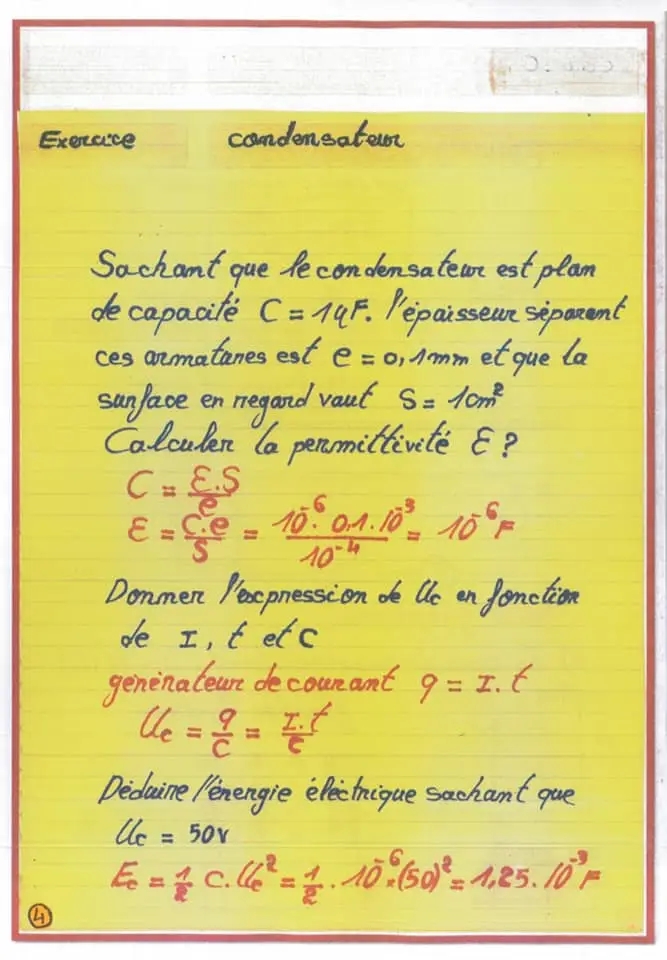 Exercice condensateur
Sachant que le condensateur est plan
de capacité C = 1μF. l'épaisseur séparent
ces armatures est e = 0,1mm et que la
surface en regard vaut S = 1cm²
Calculer la permittivité ε ?
C = ε.S/e
ε = C.e/S = 10⁻⁶. 0,1.10⁻³/10⁻⁴ = 10⁻⁶ F
Donner l'expression de Uc en fonction
de I, t et C
générateur de courant q = I.t
Uc = q/C = I.t/C
Déduire l'énergie électrique sachant que
Uc = 50V
Ec = 1/2 C.Uc² = 1/2 . 10⁻⁶.(50)² = 1,25.10⁻³ F
4